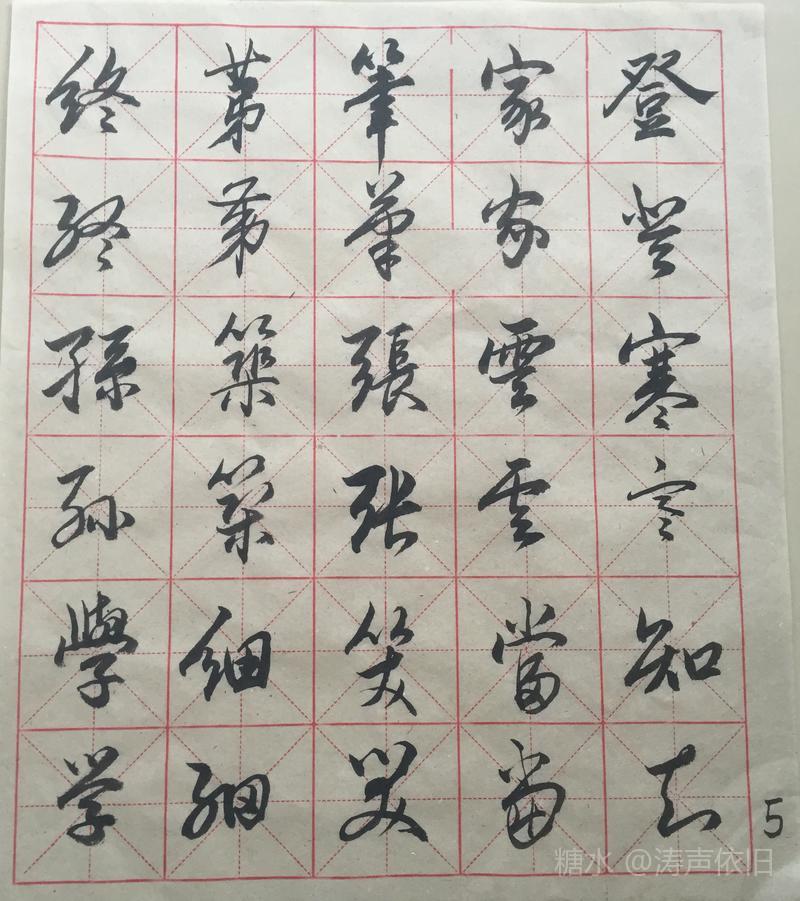 登登寒寒知知
家家雲雲當當
筆筆張张笑笑
第第築築細細
終終孫孙學学
5
糖水 @涛声依旧